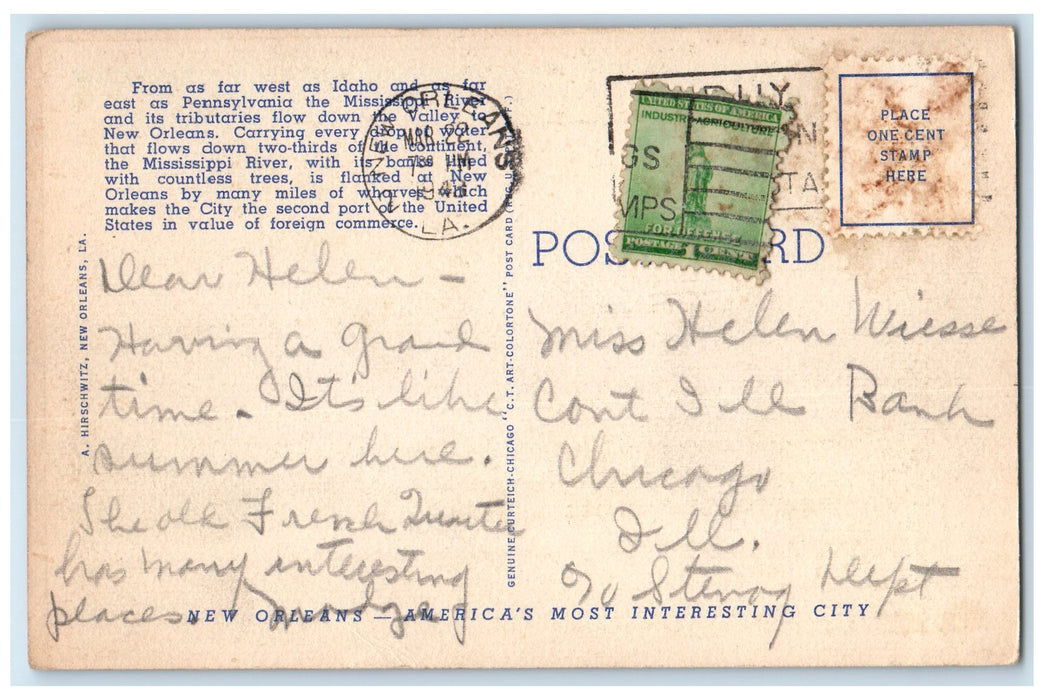 From as far west as Idaho and as far
east as Pennsylvania the Mississippi River
and its tributaries flow down the Valley to
New Orleans. Carrying every drop of water
that flows down two-thirds of the continent,
the Mississippi River, with its banks lined
with countless trees, is flanked at New
Orleans by many miles of wharves which
makes the City the second port of the United
States in value of foreign commerce.
NEW ORLEANS
MAR 22
1943
LA.
BUY
GS
MPS
TA
UNITED STATES OF AMERICA
INDUSTRY AGRICULTURE
FOR DEFENSE
POSTAGE 1 CENT
PLACE
ONE CENT
STAMP
HERE
POS RD
A. HIRSCHWITZ, NEW ORLEANS, LA.
GENUINE CURTEICH-CHICAGO "C.T. ART-COLORTONE" POST CARD
Dear Helen -
Having a grand
time - It's like
summer here.
The old French Quarter
has many interesting
places.
Miss Helen Wiesse
Cont Ill Bank
Chicago
Ill.
c/o Stenog Dept
NEW ORLEANS — AMERICA'S MOST INTERESTING CITY